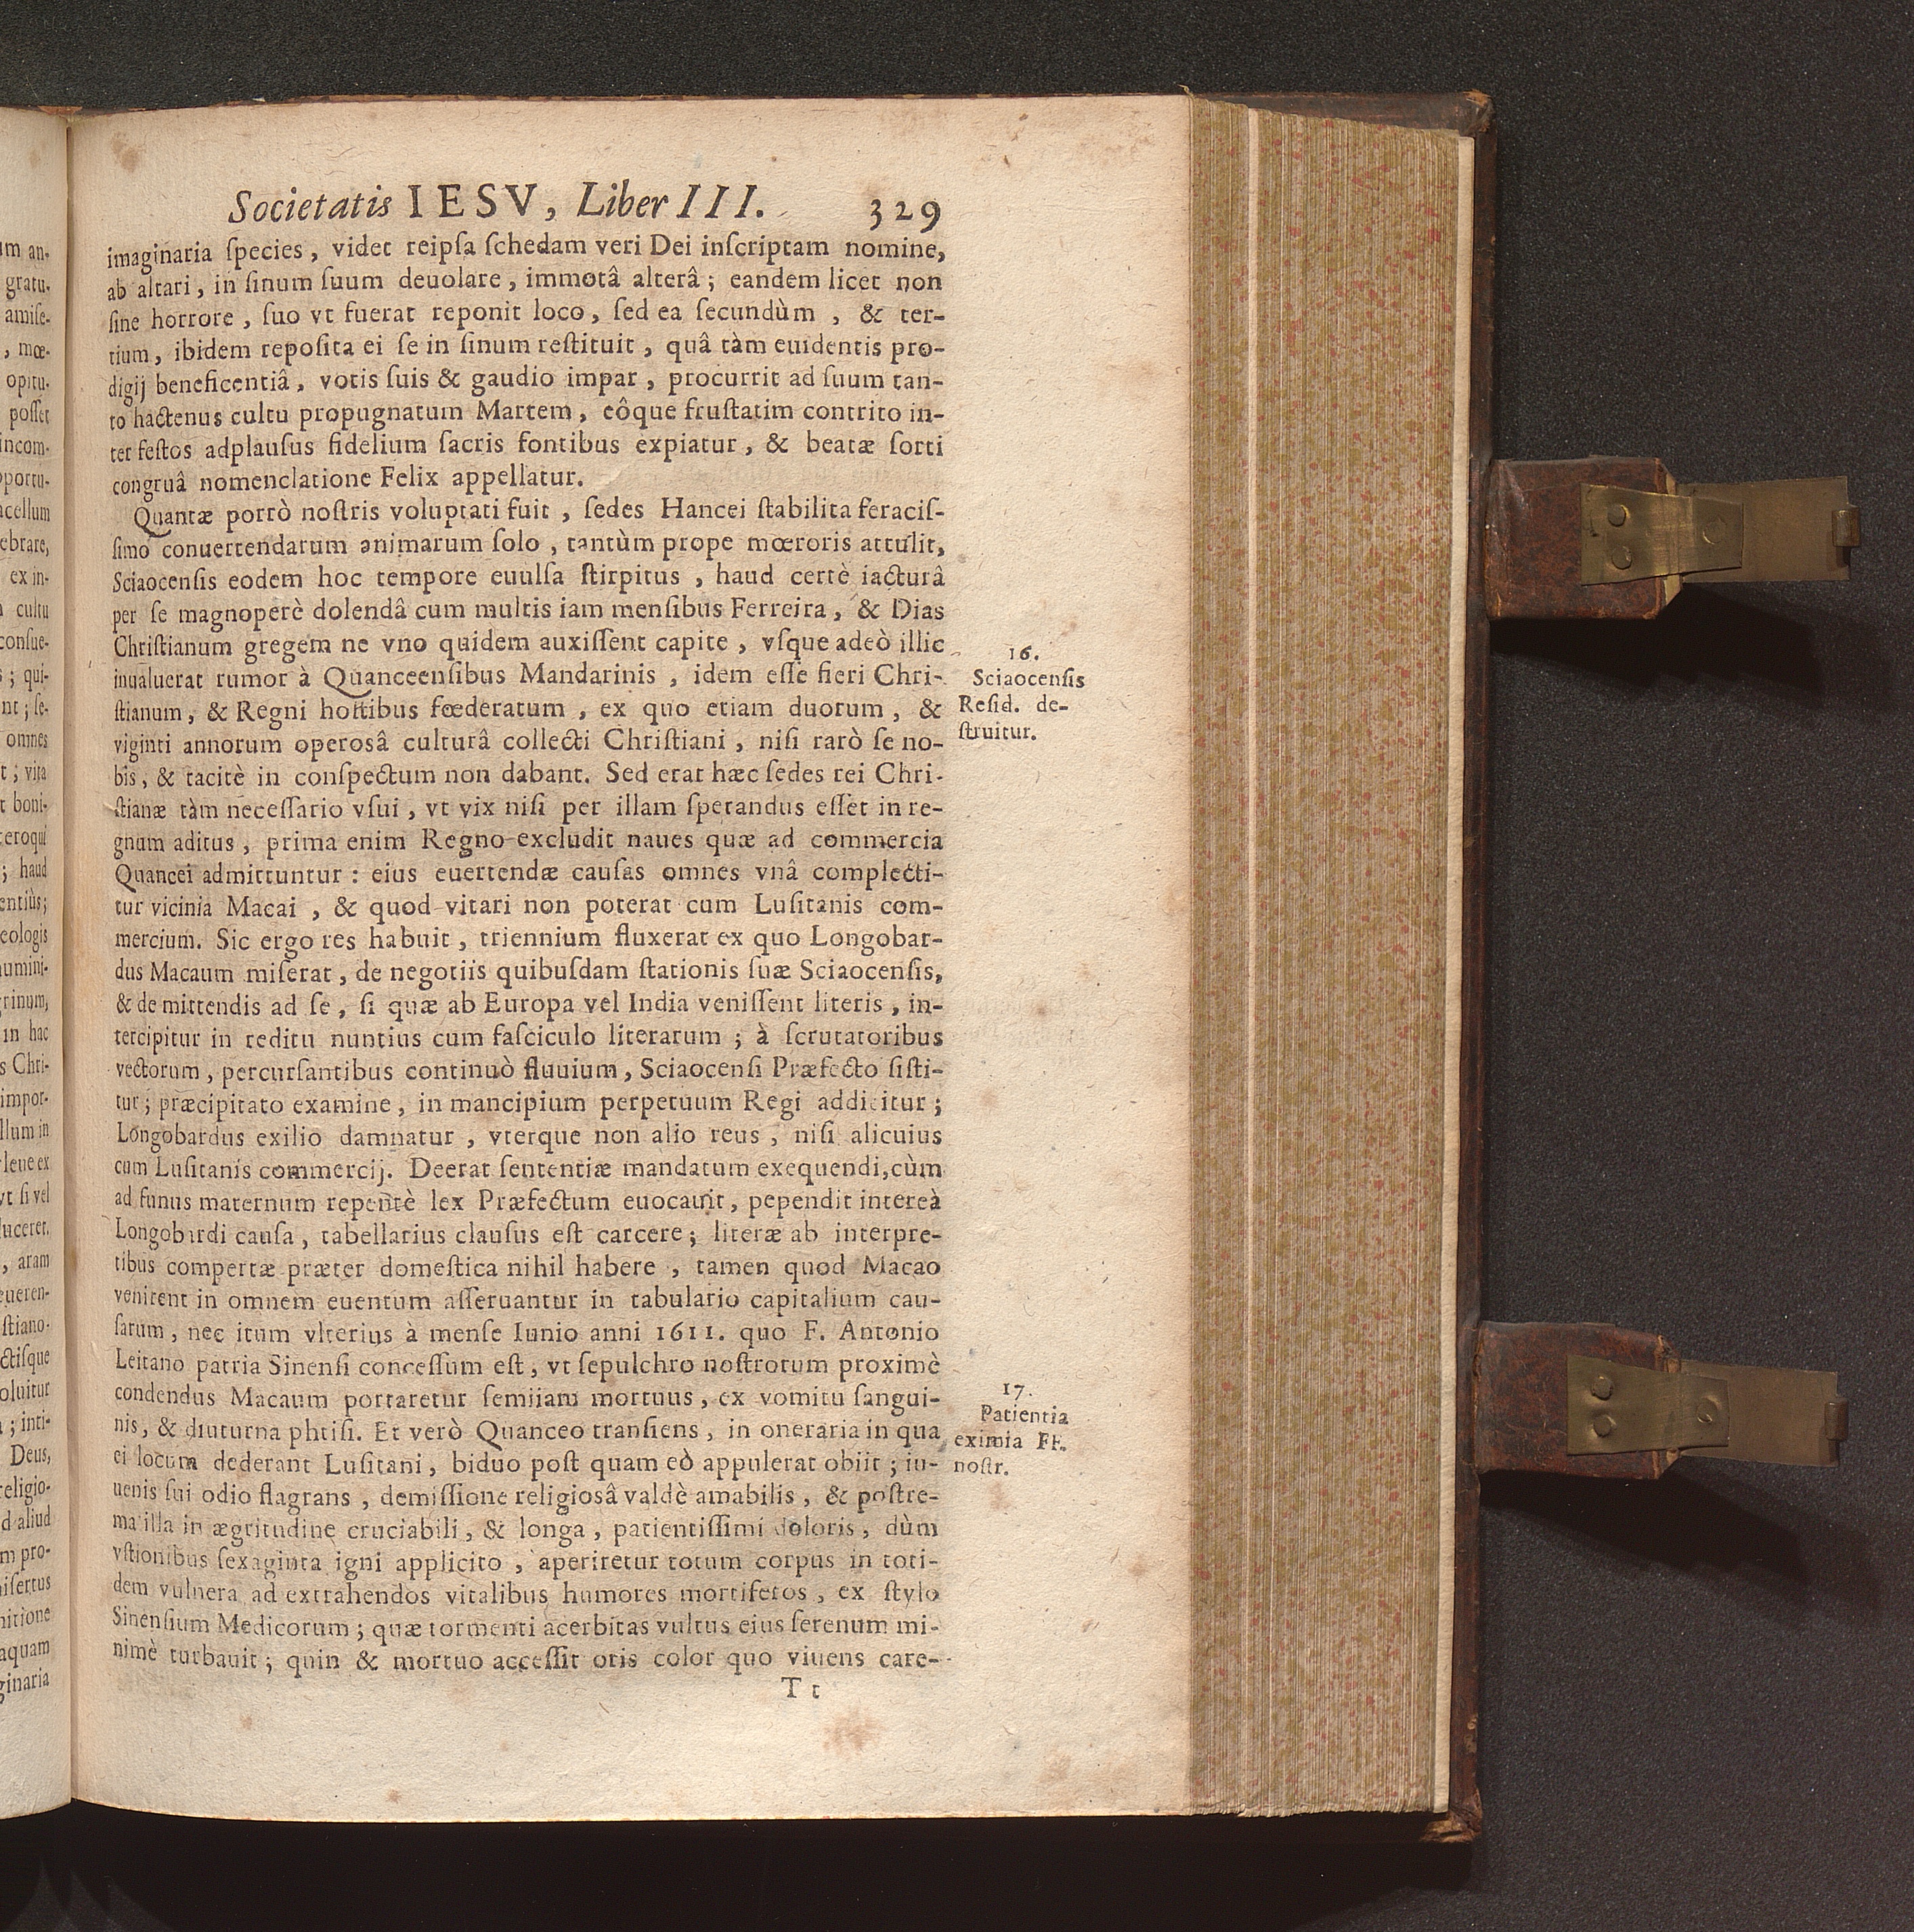 Societatis IESV, Liber III. 329
imaginaria ſpecies, videt reipſa ſchedam veri Dei inſcriptam nomine,
ab altari, in ſinum ſuum deuolare, immotâ alterâ; eandem licet non
ſine horrore, ſuo vt fuerat reponit loco, ſed ea ſecundùm, & ter-
tium, ibidem repoſita ei ſe in ſinum reſtituit, quâ tàm euidentis pro-
digij beneficentiâ, votis ſuis & gaudio impar, procurrit ad ſuum tan-
to hactenus cultu propugnatum Martem, eôque fruſtatim contrito in-
ter feſtos adplauſus fidelium ſacris fontibus expiatur, & beatæ ſorti
congruâ nomenclatione Felix appellatur.
Quantæ porrò noſtris voluptati fuit, ſedes Hancei ſtabilita feraciſ-
ſimo conuertendarum animarum ſolo, tantùm prope mœroris attulit,
Sciaocenſis eodem hoc tempore euulſa ſtirpitus, haud certè iacturâ
per ſe magnoperè dolendâ cum multis iam menſibus Ferreira, & Dias
Chriſtianum gregem ne vno quidem auxiſſent capite, vſque adeò illic
inualuerat rumor à Quanceenſibus Mandarinis, idem eſſe fieri Chri-
ſtianum, & Regni hoſtibus fœderatum, ex quo etiam duorum, &
viginti annorum operosâ culturâ collecti Chriſtiani, niſi rarò ſe no-
bis, & tacitè in conſpectum non dabant. Sed erat hæc ſedes rei Chri-
ſtianæ tàm neceſſario vſui, vt vix niſi per illam ſperandus eſſet in re-
gnum aditus, prima enim Regno excludit naues quæ ad commercia
Quancei admittuntur: eius euertendæ cauſas omnes vnâ complecti-
tur vicinia Macai, & quod vitari non poterat cum Luſitanis com-
mercium. Sic ergo res habuit, triennium fluxerat ex quo Longobar-
dus Macaum miſerat, de negotiis quibuſdam ſtationis ſuæ Sciaocenſis,
& de mittendis ad ſe, ſi quæ ab Europa vel India veniſſent literis, in-
tercipitur in reditu nuntius cum faſciculo literarum; à ſcrutatoribus
vectorum, percurſantibus continuò fluuium, Sciaocenſi Præfecto ſiſti-
tur; præcipitato examine, in mancipium perpetuum Regi addicitur;
Longobardus exilio damnatur, vterque non alio reus, niſi alicuius
cum Luſitanis commercij. Deerat ſententiæ mandatum exequendi, cùm
ad funus maternum repentè lex Præfectum euocauit, pependit intereà
Longobardi cauſa, tabellarius clauſus eſt carcere; literæ ab interpre-
tibus compertæ præter domeſtica nihil habere, tamen quod Macao
venirent in omnem euentum aſſeruantur in tabulario capitalium cau-
ſarum, nec itum vlterius à menſe Iunio anni 1611. quo F. Antonio
Leitano patria Sinenſi conceſſum eſt, vt ſepulchro noſtrorum proximè
condendus Macaum portaretur ſemiiam mortuus, ex vomitu ſangui-
nis, & diuturna phtiſi. Et verò Quanceo tranſiens, in oneraria in qua
ei locum dederant Luſitani, biduo poſt quam eò appulerat obiit; iu-
uenis ſui odio flagrans, demiſſione religiosâ valdè amabilis, & poſtre-
ma illa in ægritudine cruciabili, & longa, patientiſſimi doloris, dùm
vſtionibus ſexaginta igni applicito, aperiretur totum corpus in toti-
dem vulnera ad extrahendos vitalibus humores mortiferos, ex ſtylo
Sinenſium Medicorum; quæ tormenti acerbitas vultus eius ſerenum mi-
nimè turbauit; quin & mortuo acceſſit oris color quo viuens care-
Tt
16.
Sciaocenſis
Reſid. de-
ſtruitur.
17.
Patientia
eximia FF.
noſtr.
um an-
gratu-
amiſe-
, mœ-
opitu-
poſſet
incom-
pportu-
acellum
ebrare,
ex in-
cultu
conſue-
; qui-
nt; ſe-
omnes
t; vita
t boni-
teroqui
; haud
entiùs;
eologis
numini-
grinum,
in hac
s Chri-
impor-
llum in
leue ex
vt ſi vel
luceret.
, aram
eueren-
ſtiano-
ctiſque
oluitur
; inti-
Deus,
religio-
d aliud
m pro-
iſertus
nitione
aquam
ginaria